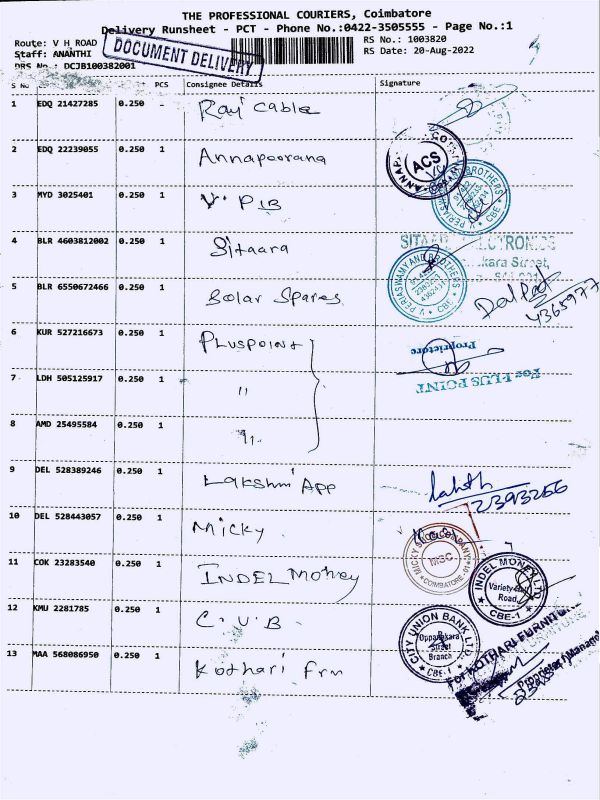 THE PROFESSIONAL COURIERS, Coimbatore
Delivery Runsheet - PCT - Phone No.:0422-3505555 - Page No.:1
Route: V H ROAD
RS No.: 1003820
Staff: ANANTHI
RS Date: 20-Aug-2022
DRS No.: DCJB100382001
DOCUMENT DELIVERY
S No PCS Consignee Details Signature
1 EDQ 21427285 0.250 - Raj Cable
2 EDQ 22239055 0.250 1 Annapoorana
ACS
3 MYD 3025401 0.250 1 V. PIB
V. PERIASWAMY AND BROTHERS CBE
4 BLR 4603812002 0.250 1 Sitaara
Street,
5 BLR 6550672466 0.250 1 Solar Spares
V. PERIASWAMY AND BROTHERS CBE
4365977
6 KUR 527216673 0.250 1 PLUSPOINT
Proprietore
7 LDH 505125917 0.250 1 "
For PLUS POINT
8 AMD 25495584 0.250 1 "
9 DEL 528389246 0.250 1 Lakshmi App
2393266
10 DEL 528443057 0.250 1 Micky
MSC COIMBATORE-01
11 COK 23283540 0.250 1 INDEL Money
INDEL MONEY LTD Variety Hall Road, CBE-1
12 KMU 2281785 0.250 1 C.U.B
CITY UNION BANK LTD Oppanakara Street Branch CBE-1
13 MAA 568086950 0.250 1 Kothari Frn
For KOTHARI FURNITU
Proprietor/Manag